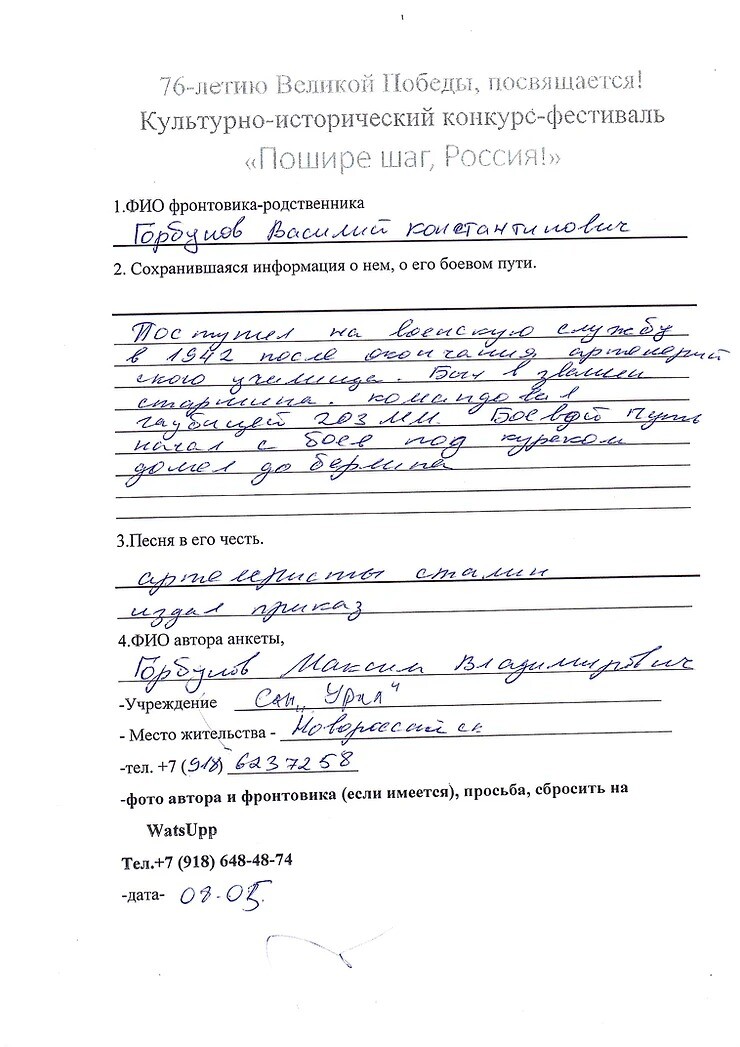 76-летию Великой Победы, посвящается!
Культурно-исторический конкурс-фестиваль
«Пошире шаг, Россия!»
1.ФИО фронтовика-родственника
Горбунов Василий Константинович
2. Сохранившаяся информация о нем, о его боевом пути.
Поступил на воинскую службу
в 1942 после окончания артелерий
ского училища. Был в звании
старшина. командовал
гаубицей 203 мм. Боевой путь
начал с боев под курском
дошел до берлина
3.Песня в его честь.
артелеристы сталин
издал приказ
4.ФИО автора анкеты,
Горбунов Максим Владимирович
-Учреждение Сан „Урал"
- Место жительства - Новороссийск
-тел. +7 (918) 6237258
-фото автора и фронтовика (если имеется), просьба, сбросить на
WatsUpp
Тел.+7 (918) 648-48-74
-дата- 08.05.